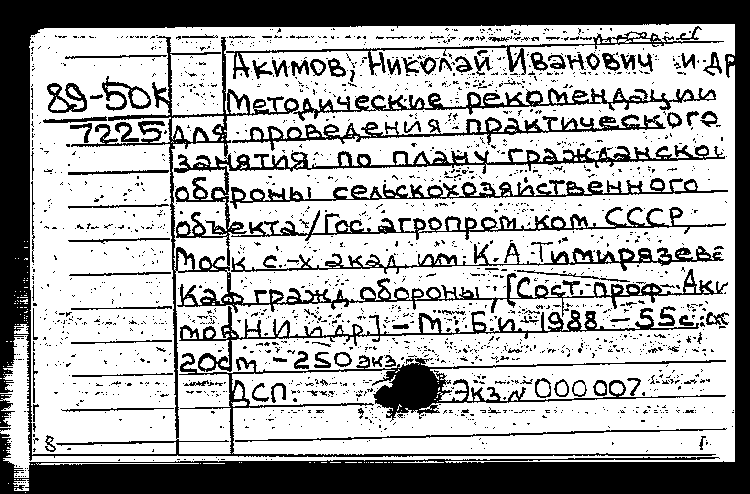 Акимов, Николай Иванович и др
89-50к
Методические рекомендации
7225
для проведения практического
занятия по плану гражданской
обороны сельскохозяйственного
объекта / Гос. агропром. ком. СССР,
Моск. с.-х. акад. им. К. А. Тимирязева
Каф. гражд. обороны; [Сост. проф. Аки
мов Н.И. и др.]. - М.: Б.и., 1988. - 55с.;
20см. - 250 экз.
ДСП. Экз. № 000007.
8 1